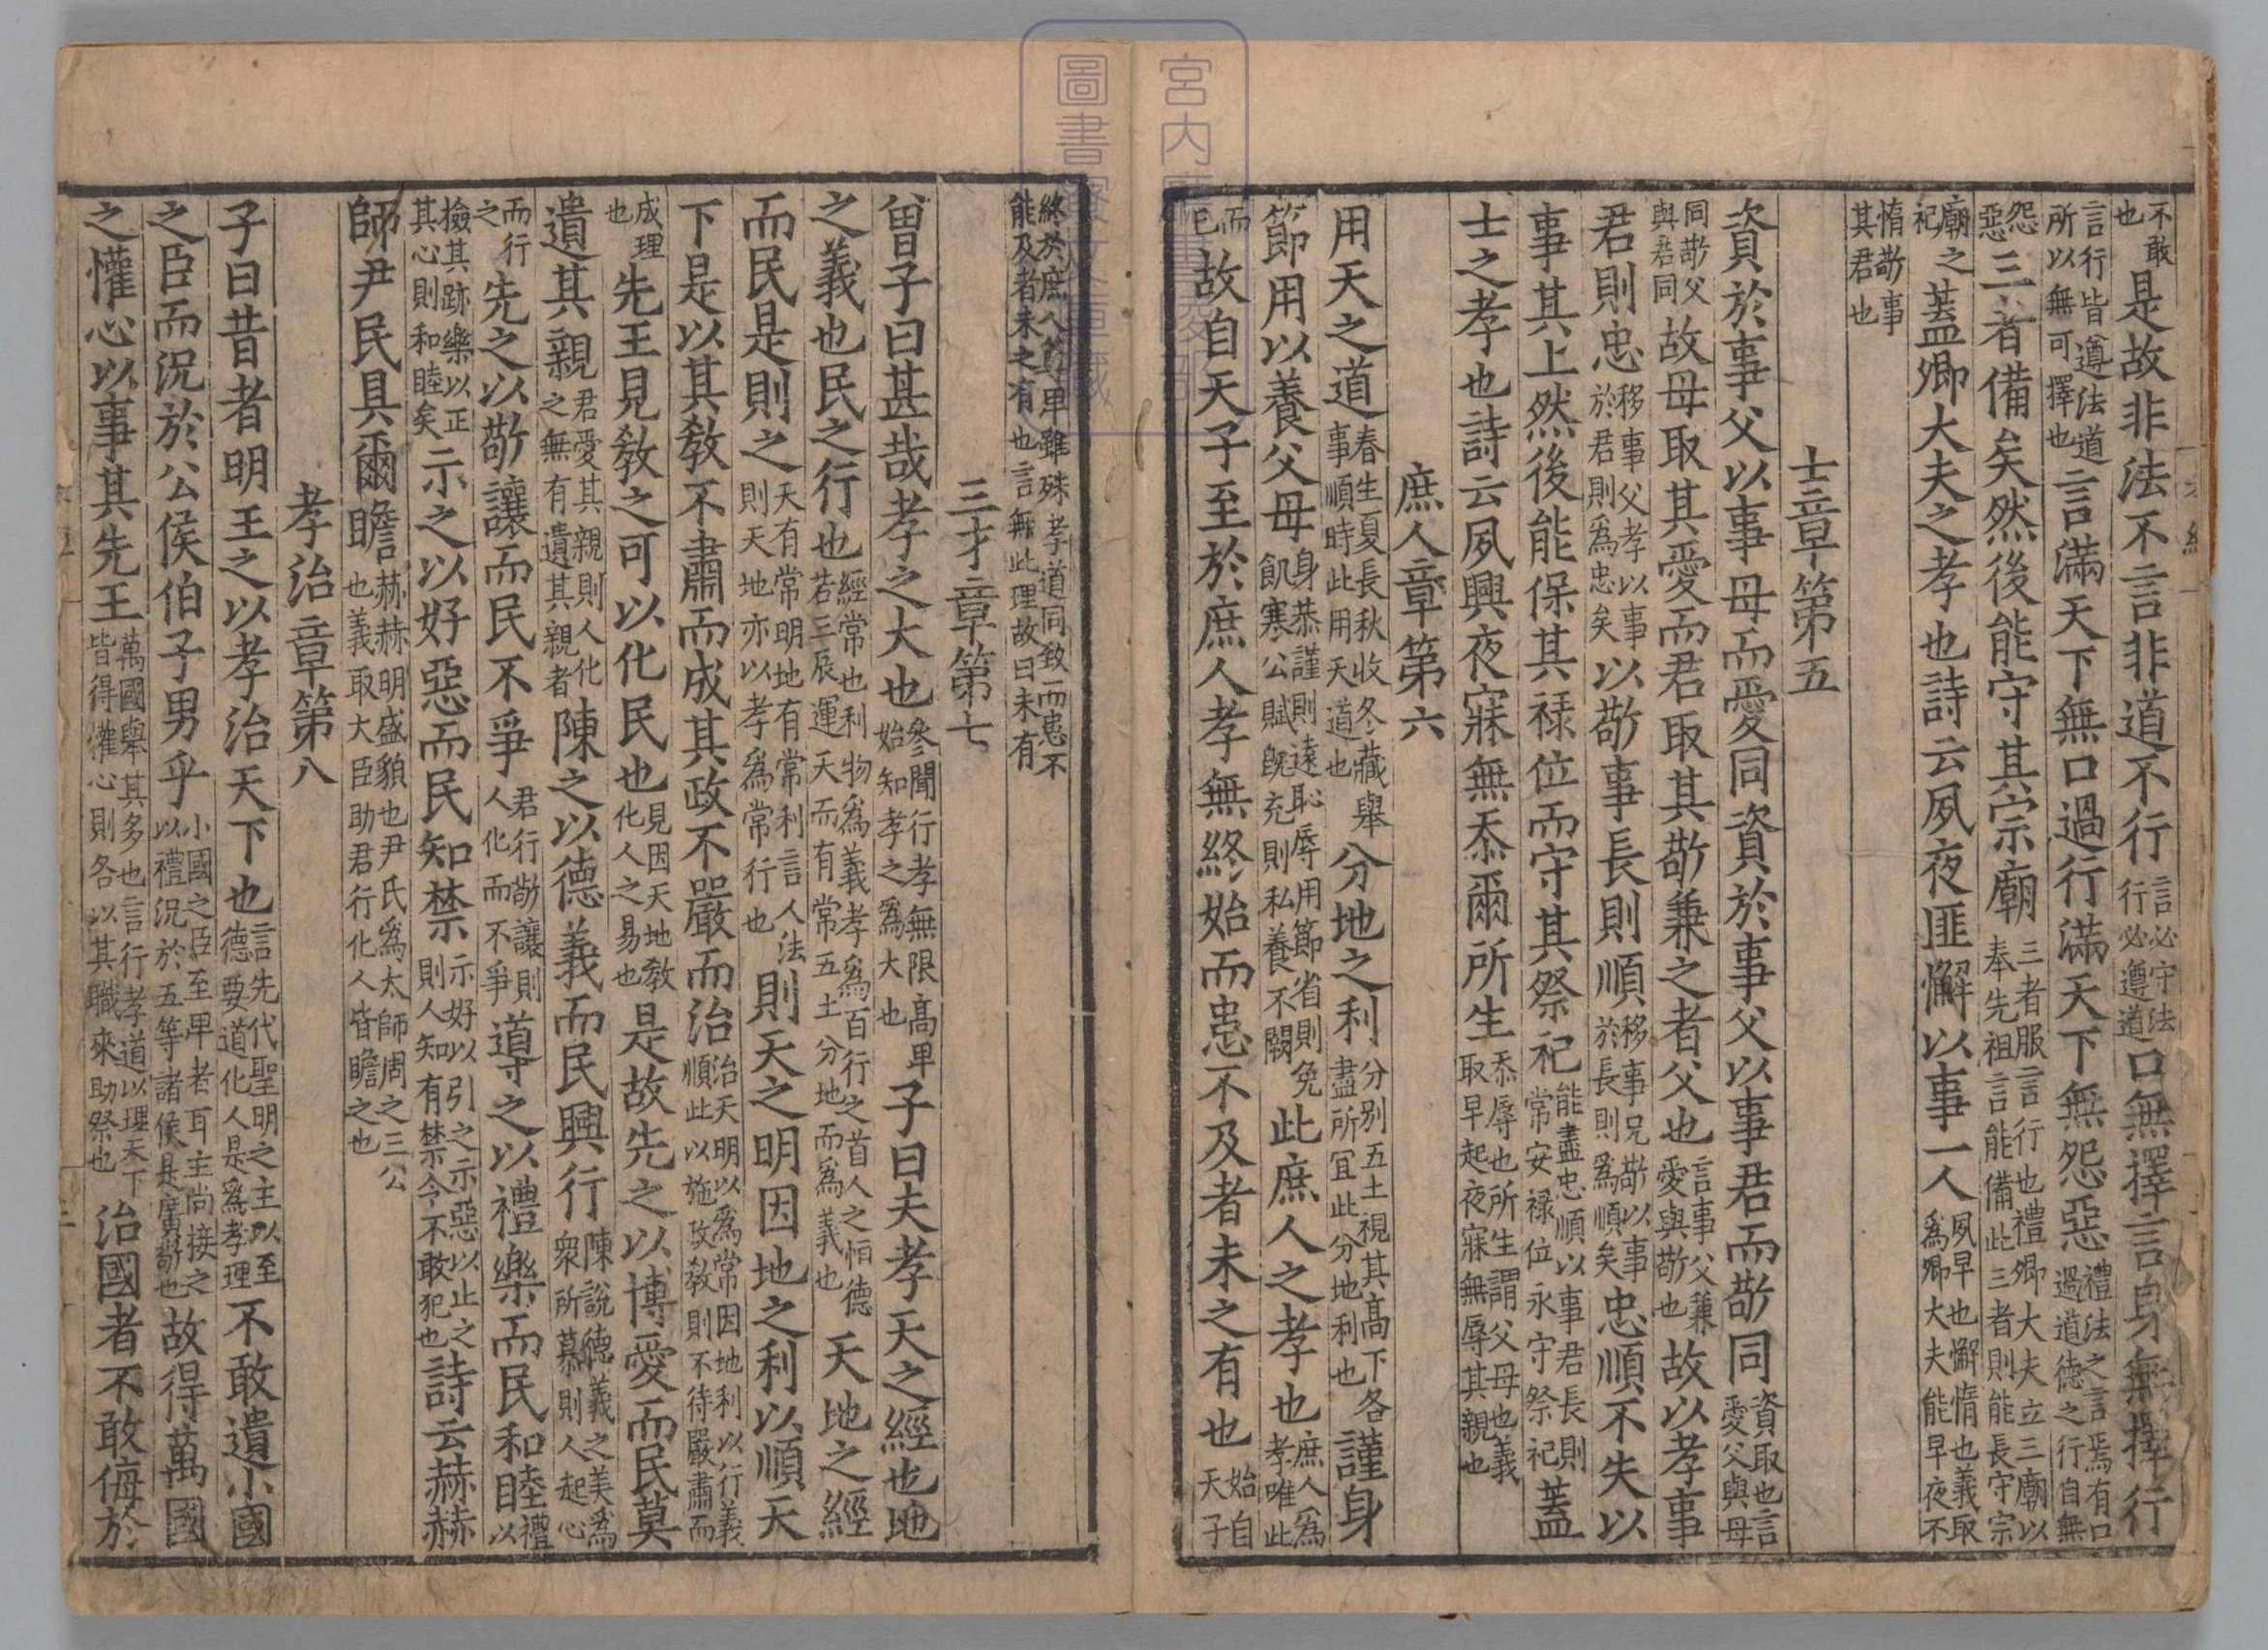 不敢也是故非法不言非道不行言必守法行必遵道口無擇言身無擇行
言行皆遵法道所以無可擇也言滿天下無口過行滿天下無怨惡禮法之言焉有口過道德之行自無
怨惡三者備矣然後能守其宗廟三者服言行也禮卿大夫立三廟以奉先祖言能備此三者則能長守宗
廟之祀蓋卿大夫之孝也詩云夙夜匪懈以事一人夙早也懈惰也義取爲卿大夫能早夜不
惰敬事其君也
士章第五
資於事父以事母而愛同資於事父以事君而敬同資取也言愛父與母
同敬父與君同故母取其愛而君取其敬兼之者父也言事父兼愛與敬也故以孝事
君則忠移事父孝以事於君則爲忠矣以敬事長則順移事兄敬以事於長則爲順矣忠順不失以
事其上然後能保其祿位而守其祭祀能盡忠順以事君長則常安祿位永守祭祀蓋
士之孝也詩云夙興夜寐無忝爾所生忝辱也所生謂父母也義取早起夜寐無辱其親也
庶人章第六
用天之道春生夏長秋收冬藏舉事順時此用天道也分地之利分別五土視其高下各盡所宜此分地利也謹身
節用以養父母身恭謹則遠恥辱用節省則免飢寒公賦既充則私養不闕此庶人之孝也庶人爲孝唯此
而已故自天子至於庶人孝無終始而患不及者未之有也始自天子
終於庶人尊卑雖殊孝道同致而患不能及者未之有也言無此理故曰未有
三才章第七
曾子曰甚哉孝之大也參聞行孝無限高卑始知孝之爲大也子曰夫孝天之經也地
之義也民之行也經常也利物爲義孝爲百行之首人之恒德若三辰運天而有常五土分地而爲義也天地之經
而民是則之天有常明地有常利言人法則天地亦以孝爲常行也則天之明因地之利以順天
下是以其教不肅而成其政不嚴而治治天明以爲常因地利以行義順此以施政教則不待嚴肅而
成理也先王見教之可以化民也見因天地教化人之易也是故先之以博愛而民莫
遺其親君愛其親則人化之無有遺其親者陳之以德義而民興行陳說德義之美爲眾所慕則人起心
而行之先之以敬讓而民不爭君行敬讓則人化而不爭導之以禮樂而民和睦禮以
檢其跡樂以正其心則和睦矣示之以好惡而民知禁示好以引之示惡以止之則人知有禁令不敢犯也詩云赫赫
師尹民具爾瞻赫赫明盛貌也尹氏爲太師周之三公也義取大臣助君行化人皆瞻之也
孝治章第八
子曰昔者明王之以孝治天下也言先代聖明之主以至德要道化人是爲孝理不敢遺小國
之臣而況於公侯伯子男乎小國之臣至卑者耳主尚接之以禮況於五等諸侯是廣敬也故得萬國
之懽心以事其先王萬國舉其多也言行孝道以理天下皆得懽心則各以其職來助祭也治國者不敢侮於